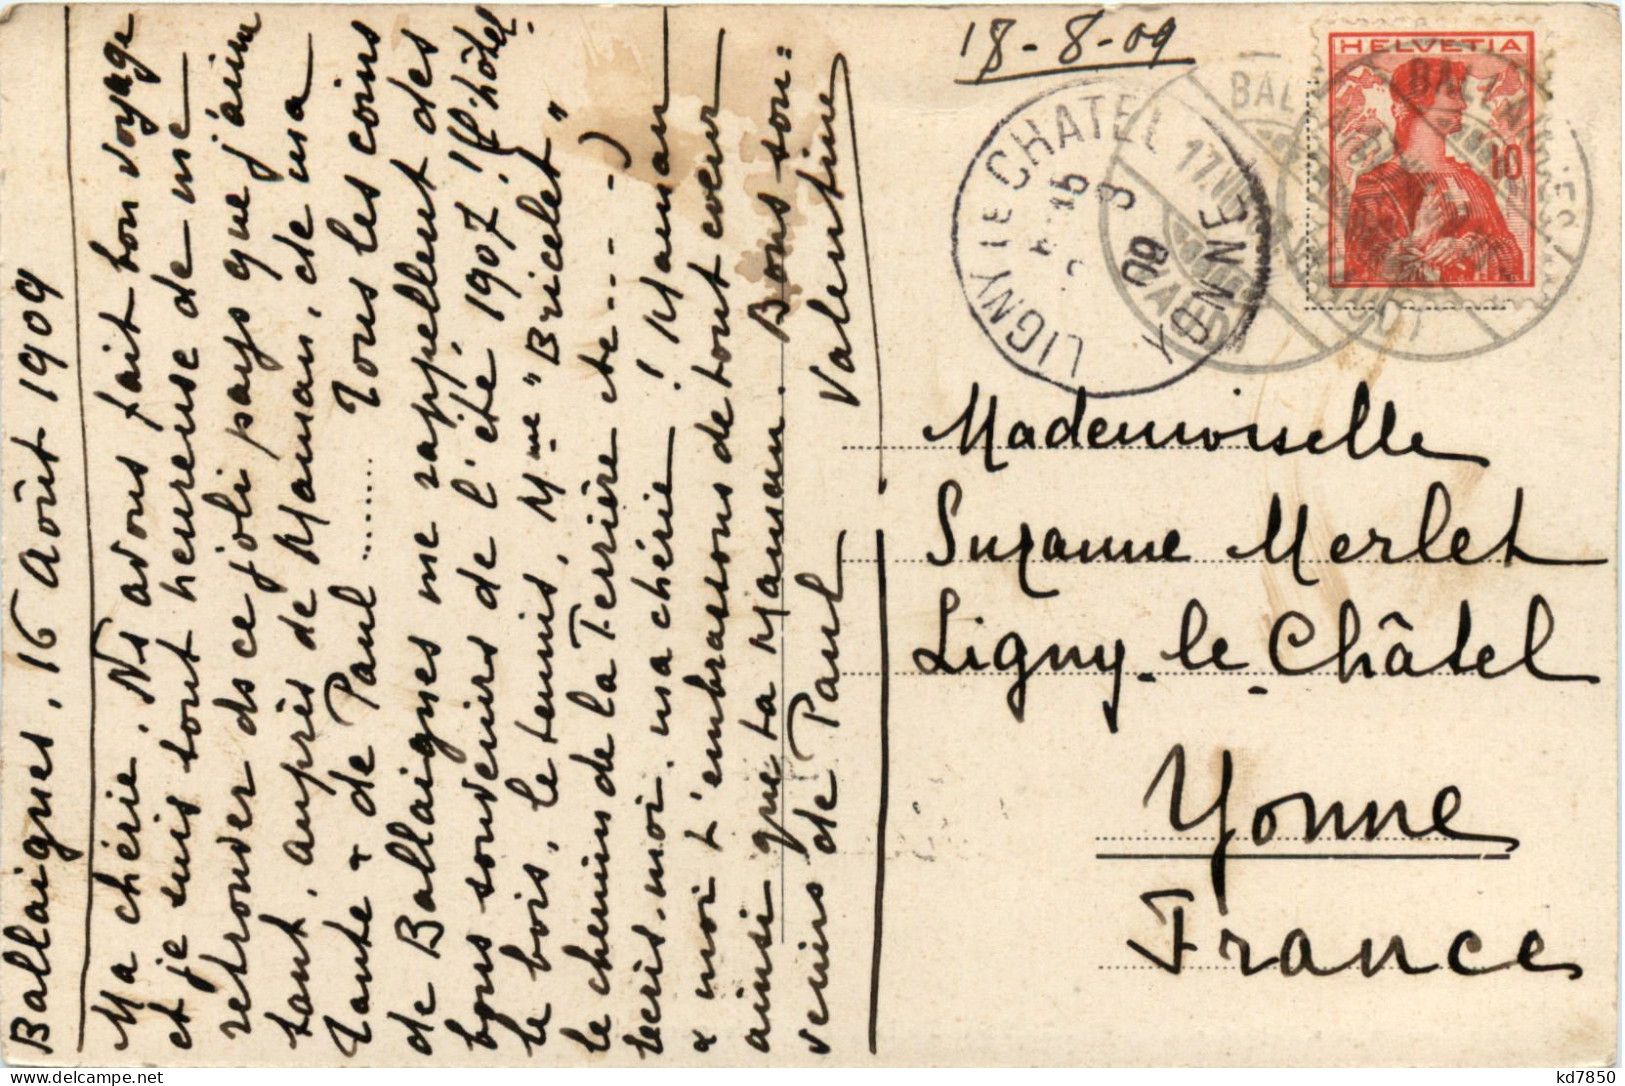 Ballaigues, 16 Août 1909
Ma chérie. Ns avons fait bon voyage
et je suis tout heureuse de me
retrouver ds ce joli pays que j'aime
tant, auprès de Maman, de ma
Tante & de Paul ........ Tous les coins
de Ballaigues me rappellent des
bons souvenirs de l'été 1907! (l'hôtel
le bois, le tennis, Mme "Bricelet"
le chemin de la Ferrière etc....)
Écris-moi, ma chérie! Maman
& moi t'embrassons de tout cœur
ainsi que ta Maman. Bons sou=
venirs de Paul
Valentine
18-8-09
HELVETIA
10
BALLAIGUES
17.VIII
(VAUD)
LIGNY LE CHATEL
15
8
09
YONNE
Mademoiselle
Suzanne Merlet
Ligny-le-Châtel
Yonne
France
kd7850